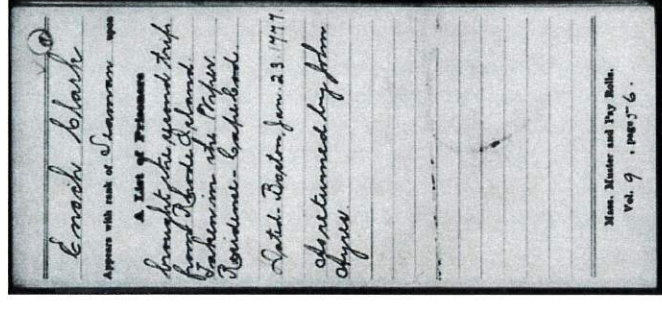 Enoch Clark
Appears with rank of Seaman upon
A List of Prisoners
brought the second trip
from Rhode Island.
Taken in the
Residence - Cape Cod.
Dated. Boston, Jan. 23 1777.
As returned by John
Ayres.
Mass. Muster and Pay Rolls.
Vol. 9 . page 56.